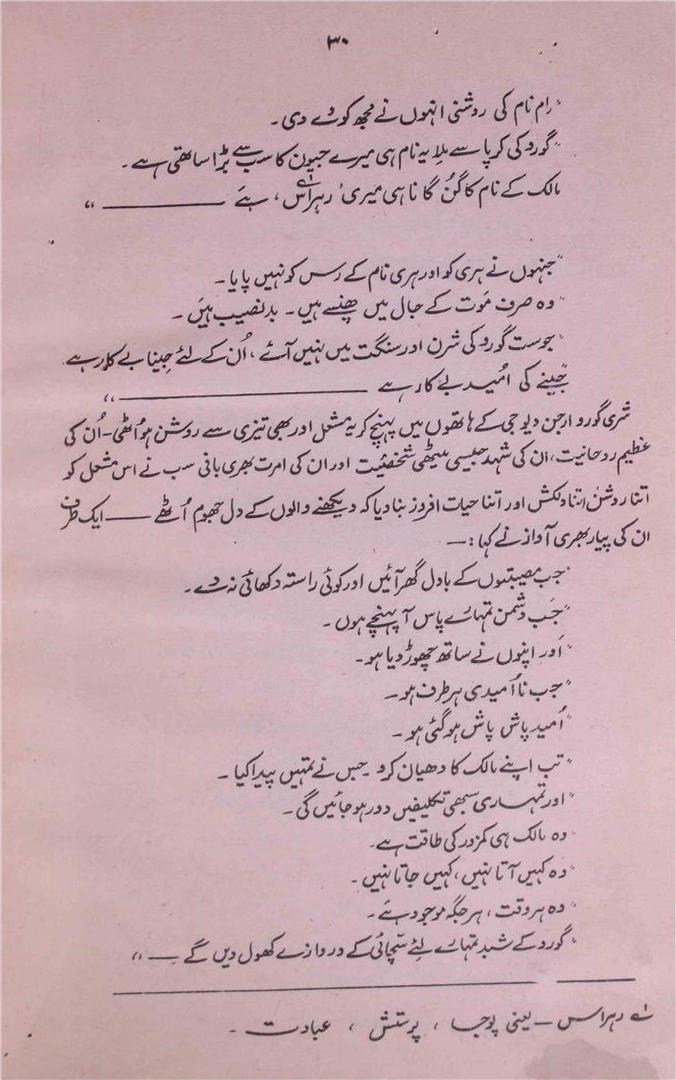 ۳۰
"رام نام کی روشنی انہوں نے مجھ کو دے دی۔
"گورو کی کرپا سے ملا یہ نام ہی میرے جیون کا سب سے بڑا ساتھی ہے۔
مالک کے نام کا گُن گانا ہی میری ' رہراس، ہے ــــــــــ "
"جنہوں نے ہری کو اور ہری نام کے رس کو نہیں پایا۔
"وہ صرف مَوت کے جال میں پھنسے ہیں۔ بدنصیب ہیں۔
"جوست گورو کی شرن اور سنگت میں نہیں آئے، اُن کے لئے جینا بے کار ہے
"جینے کی اُمید بے کار ہے ــــــــــــــــــــ "
شری گورو ارجن دیو جی کے ہاتھوں میں پہنچ کر یہ مشعل اور بھی تیزی سے روشن ہو اُٹھی۔ اُن کی
عظیم روحانیت، ان کی شہد جیسی میٹھی شخصیّت اور ان کی امرت بھری بانی سب نے اس مشعل کو
اتنا روشن اتنا دلکش اور اتنا حیات افروز بنا دیا کہ دیکھنے والوں کے دل جھوم اُٹھے ــــ ایک طرف
ان کی پیار بھری آواز نے کہا:ــ
"جب مصیبتوں کے بادل گھر آئیں اور کوئی راستہ دکھائی نہ دے۔
"جَب دشمن تمہارے پاس آ پہنچے ہوں۔
"اَور اپنوں نے ساتھ چھوڑ دیا ہو۔
"جب نا اُمیدی ہر طرف ہو۔
"اُمید پاش پاش ہو گئی ہو۔
"تب اپنے مالک کا دھیان کرو جس نے تمہیں پیدا کیا۔
"اور تمہاری سبھی تکلیفیں دور ہو جائیں گی۔
"وہ مالک ہی کمزور کی طاقت ہے۔
"وہ کہیں آتا نہیں، کہیں جاتا نہیں۔
"وہ ہر وقت، ہر جگہ موجود ہے۔
"گورو کے شبد تمہارے لئے سچّائی کے دروازے کھول دیں گے ــ "
لے رہراس ــ یعنی پوجا ، پرستش ، عبادت ۔